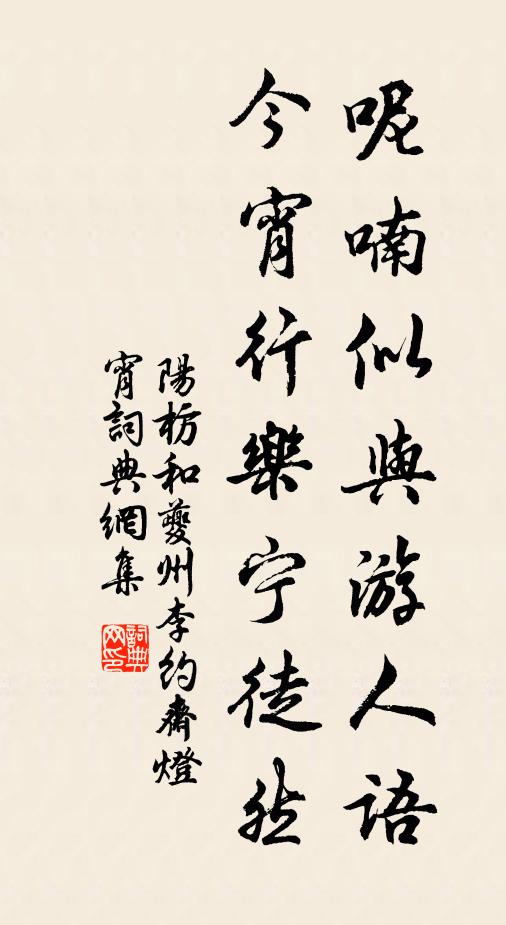 呢喃似與游人語
今宵行樂宁徒然
陽枋和夔州李約齋燈
宵詞典網集
詞典
网印